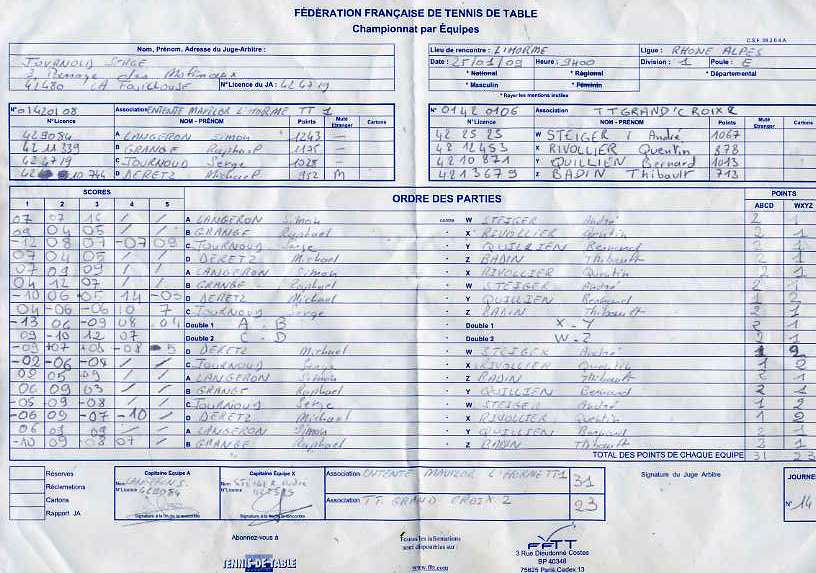 FÉDÉRATION FRANÇAISE DE TENNIS DE TABLE
Championnat par Équipes
C.S.F. 09 2 6 8 A
Nom, Prénom, Adresse du Juge-Arbitre :
JOURNOUD SERGE
42480 LA FOUILLOUSE N° Licence du JA : 424719
Lieu de rencontre : L'HORME Ligue : RHONE ALPES
Date : 25/01/09 Heure : 9H00 Division : 1 Poule : E
* National * Régional * Départemental
* Masculin * Féminin
* Rayer les mentions inutiles
N° 01420108 Association ENTENTE MAVILOR L'HORME TT 1
N°Licence NOM - PRÉNOM Points Muté Etranger Cartons
429084 A LANGERON Simon 1243 —
4211339 B GRANGE Raphael 1175 —
424719 C JOURNOUD Serge 1028 —
D DERETZ Michael 952 M
N° 01420106 Association TT GRAND'CROIX 2
N°Licence NOM - PRÉNOM Points Muté Etranger Cartons
42 25 23 W STEIGER André 1067
42 12453 X RIVOLLIER Quentin 878
42 10871 Y QUILLIEN Bernard 1013
4213679 Z BADIN Thibault 713
SCORES ORDRE DES PARTIES POINTS
1 2 3 4 5 ABCD WXYZ
07 07 16 / / A LANGERON Simon contre W STEIGER André 2 1
09 04 05 / / B GRANGE Raphael X RIVOLLIER Quentin 2 1
-12 08 07 -07 09 C JOURNOUD Serge Y QUILLIEN Bernard 2 1
07 04 05 / / D DERETZ Michael Z BADIN Thibault 2 1
07 09 09 / / A LANGERON Simon X RIVOLLIER Quentin 2 1
04 12 07 / / B GRANGE Raphael W STEIGER André 2 1
-10 06 -05 14 D DERETZ Michael Y QUILLIEN Bernard 1 2
04 -06 -06 10 7 C JOURNOUD Serge Z BADIN Thibault 2 1
-13 06 -09 08 04 Double 1 A - B Double 1 X - Y 2 1
09 -10 12 07 Double 2 C - D Double 2 W - Z 2 1
-09 -08 D DERETZ Michael W STEIGER André 1 2
-02 -06 -08 / / C JOURNOUD Serge X RIVOLLIER Quentin 1 2
05 09 / / A LANGERON Simon Z BADIN Thibault 2 1
06 09 03 / / B GRANGE Raphael Y QUILLIEN Bernard 2 1
-05 -09 -08 / / C JOURNOUD Serge W STEIGER André 1 2
-06 09 -07 -10 / D DERETZ Michael X RIVOLLIER Quentin 1 2
06 09 / / A LANGERON Simon Y QUILLIEN Bernard 2 1
-10 09 08 07 / B GRANGE Raphael Z BADIN Thibault 2 1
TOTAL DES POINTS DE CHAQUE EQUIPE 31 23
Réserves
Réclamations
Cartons
Rapport JA
Capitaine Équipe A
Nom LANGERON S.
N°Licence 429084
Signature à la fin de la rencontre
Capitaine Équipe X
Nom STEIGER André
N°Licence
Signature à la fin de la rencontre
Association ENTENTE MAVILOR L'HORME TT1 31
Association TT GRAND CROIX 2 23
Signature du Juge Arbitre
JOURNÉE
N° 14
Abonnez-vous à
TENNIS-DE-TABLE
Toutes les informations
sont disponibles sur
www.fftt.com
FFTT
3 Rue Dieudonné Costes
BP 40348
75625 Paris Cedex 13